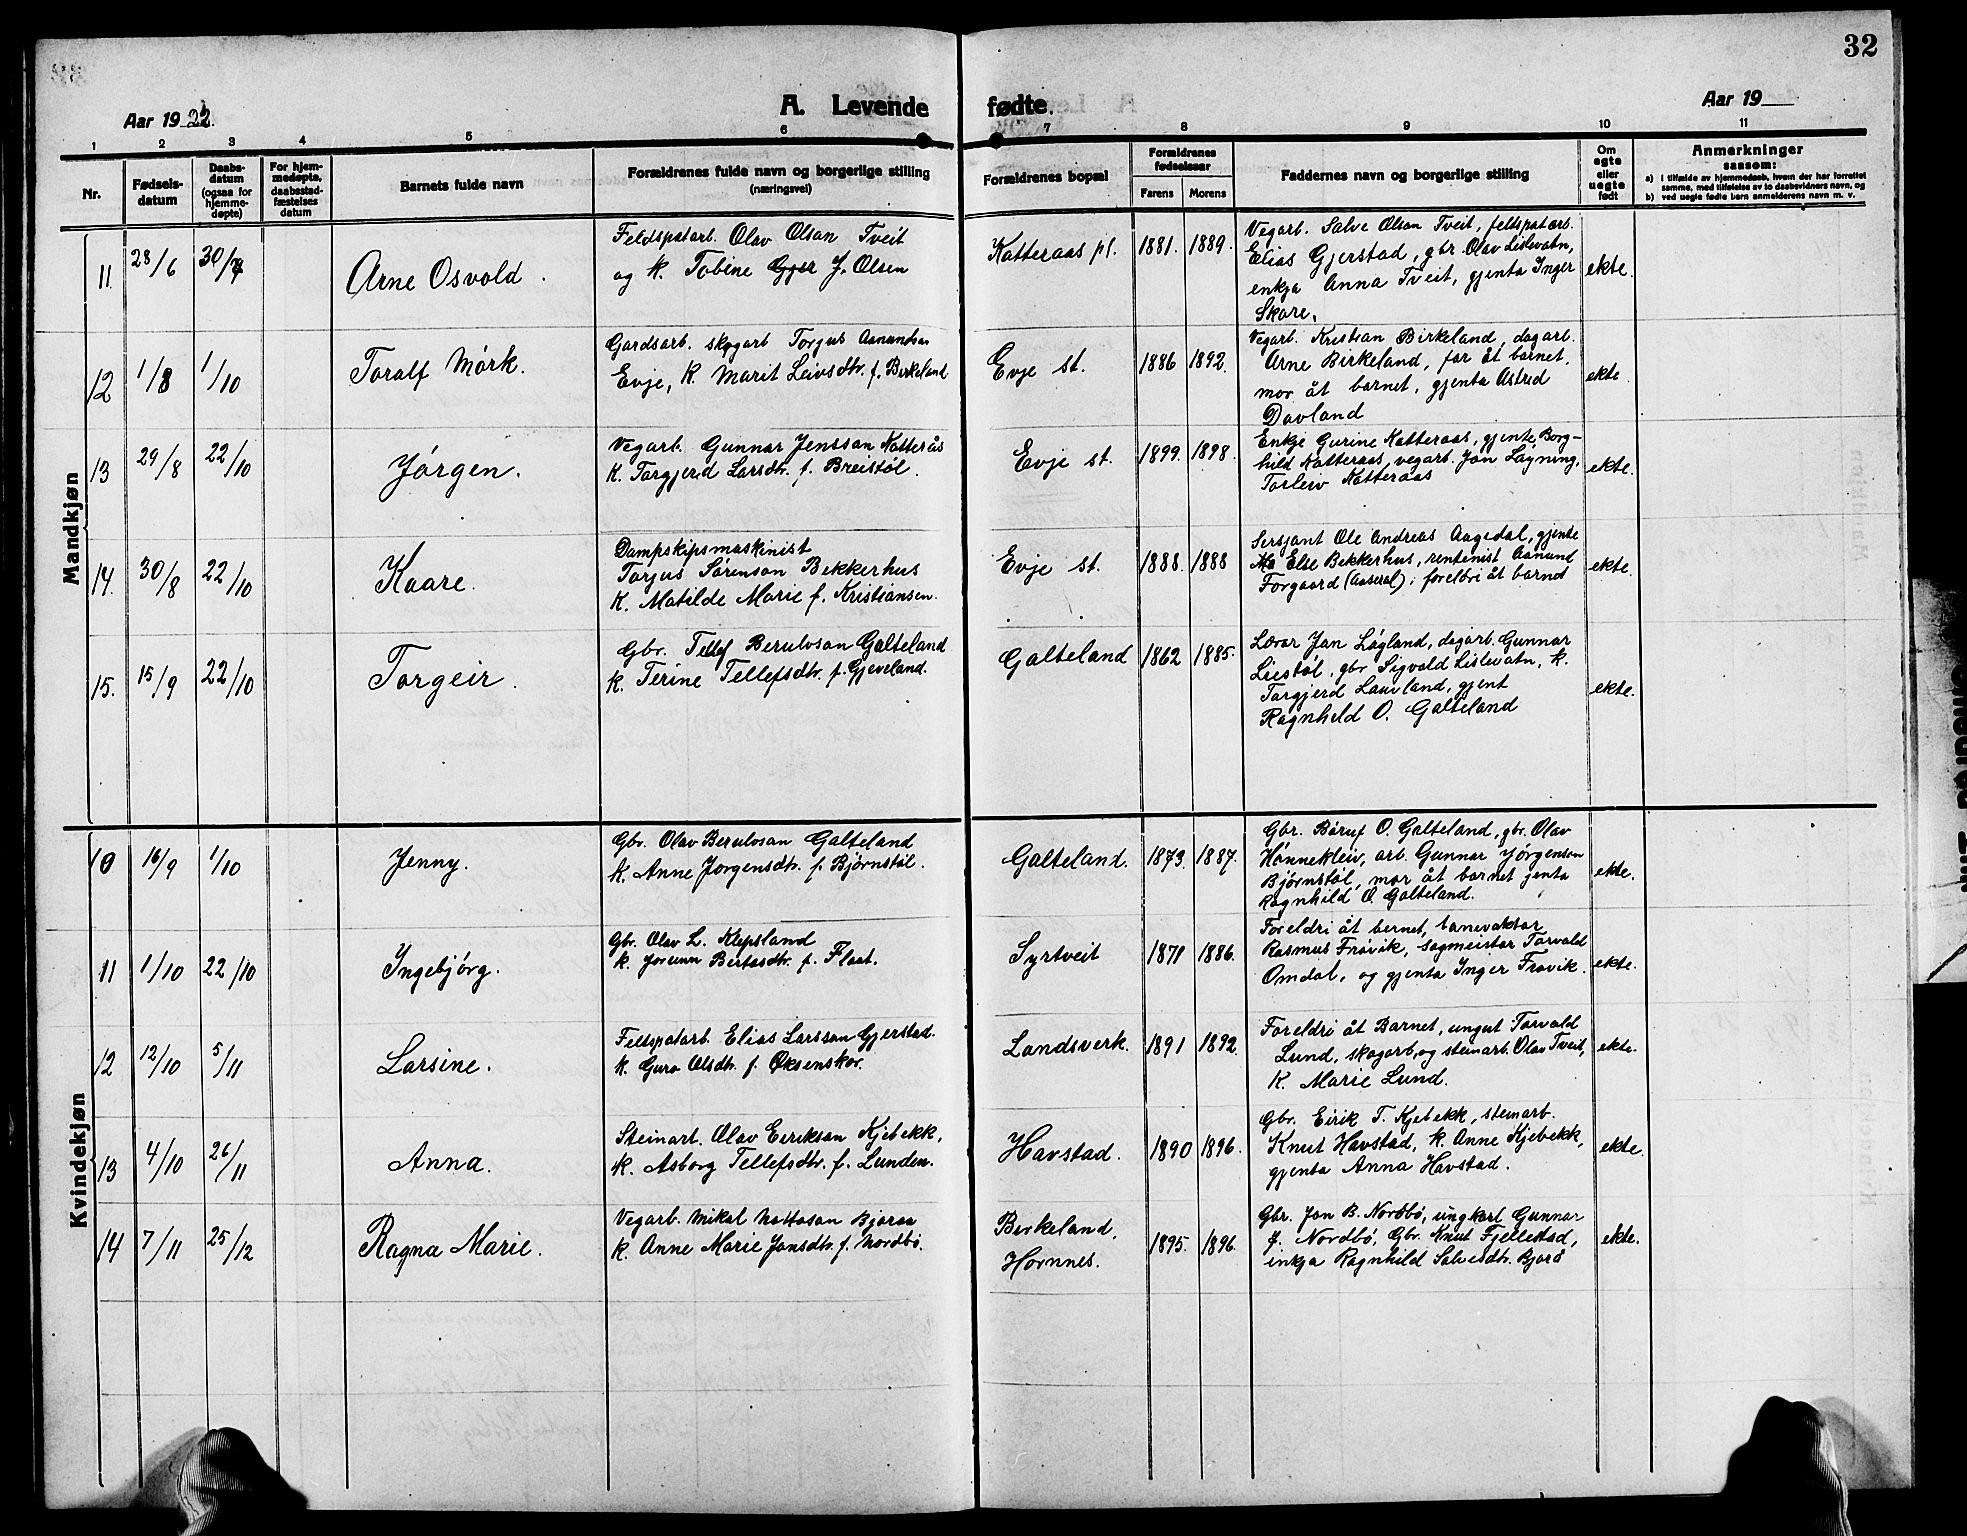 32
Aar 1922.
A. Levende fødte.
Aar 19
1 2 3 4 5 6 7 8 9 10 11
Nr.
Fødsels-datum
Daabs-datum (ogsaa for hjemme-døpte)
For hjem-medøpte, daabsstad-fæstelses datum
Barnets fulde navn
Forældrenes fulde navn og borgerlige stilling (næringsvei)
Forældrenes bopæl
Forældrenes fødselsaar
Farens Morens
Faddernes navn og borgerlige stilling
Om ægte eller uægte født
Anmerkninger
saasom:
a) i tilfælde av hjemmedaab, hvem der har forrettet samme, med tilføielse av to daabsvidners navn, og
b) ved uegte fødte barn anmelderens navn m. v.
Mandkjøn
11. 28/6 30/7 Arne Osvald.
Feldspatarb. Olav Olsan Tveit
og k. Tobine J. Olsen
Katteraas pl. 1881. 1889.
Vegarb. Salve Olsan Tveit, feltspatarb.
Elias Gjerstad, gbr Olav Lislevatn,
enkja Anna Tveit, gjenta Inger
Skare.
ekte.
12 1/8 1/10 Toralf Mørk.
Gardsarb. skogarb Torgus Aanundsan
Evje, k. Marit Leivsdtr. f. Birkeland
Evje st. 1886 1892.
Vegarb. Kristian Birkeland, dagarb.
Arne Birkeland, far åt barnet,
mor åt barnet, gjenta Astrid
Davland
ekte
13 29/8 22/10 Jørgen.
Vegarb. Gunnar Jenssan Katterås
k. Targjerd Larsdtr. f. Breistøl.
Evje st. 1899. 1898.
Enkje Gurine Katteraas, gjente Borg-
hild Katteraas, vegarb. Jon Løyning,
Torleiv Katteraas
ekte.
14. 30/8 22/10 Kaare.
Dampskipsmaskinist
Torjus Sørenson Bekkerhus
k. Matilde Marie f. Kristiansen.
Evje st. 1888. 1888
Sersjant Ole Andreas Aagedal, gjente
Else Bekkerhus, rentenist Aanund
Forgaard (Aaseral); foreldri åt barnet
ekte.
15. 15/9 22/10 Torgeir.
Gbr. Tellef Berulvsan Galteland
k. Terine Tellefsdtr. f. Gjeveland.
Galteland 1862 1885.
Lærar Jon Løgland, dagarb. Gunnar
Liestøl, gbr Sigvald Lislevatn, k.
Targjerd Lauvland, gjent
Ragnhild O. Galteland
ekte.
Kvindekjøn
10 16/9 1/10 Jenny.
Gbr. Olav Berulvsan Galteland
k. Anne Jørgensdtr. f. Bjørnstøl.
Galteland. 1873. 1887.
Gbr. Børuf O. Galteland, gbr. Olav
Hønnekleiv, arb. Gunnar Jørgenson
Bjørnstøl, mor åt barnet jenta
Ragnhild O. Galteland.
ekte.
11 1/10 22/10 Ingebjørg.
Gbr. Olav L. Klepsland
k. Jorunn Bertosdtr. f. Flaat.
Syrtveit 1871 1886.
Foreldri åt bernet, banevaktar
Rasmus Frøvik, sagmeistar Torvald
Omdal, og gjenta Inger Frøvik.
ekte.
12 12/10 5/11 Larsine.
Feltspatarb. Elias Larssan Gjerstad.
k. Guro Olsdtr. f. Øksenskor.
Landsverk. 1891 1892.
Foreldri åt Barnet, ungut Torvald
Lund, skogarb, og steinarb. Olav Tveit,
k. Marie Lund.
ekte.
13 4/10 26/11 Anna.
Steinarb. Olav Eirikson Kjebekk,
k. Asborg Tellefsdtr. f. Lunden.
Havstad. 1890 1896.
Gbr. Eirik T. Kjebekk, steinarb.
Knut Havstad, k. Anne Kjebekk,
gjenta Anna Havstad.
ekte.
14 7/11 25/12 Ragna Marie.
Vegarb. Mikal Nottosan Bjoraa
k. Anne Marie Jonsdtr. f. Nordbø.
Birkeland,
Hornnes.
1895. 1896.
Gbr. Jon B. Nordbø, ungkarl Gunnar
J. Nordbø, Gbr. Knut Fjellestad,
inkja Ragnhild Salvesdtr. Bjorå
ekte.